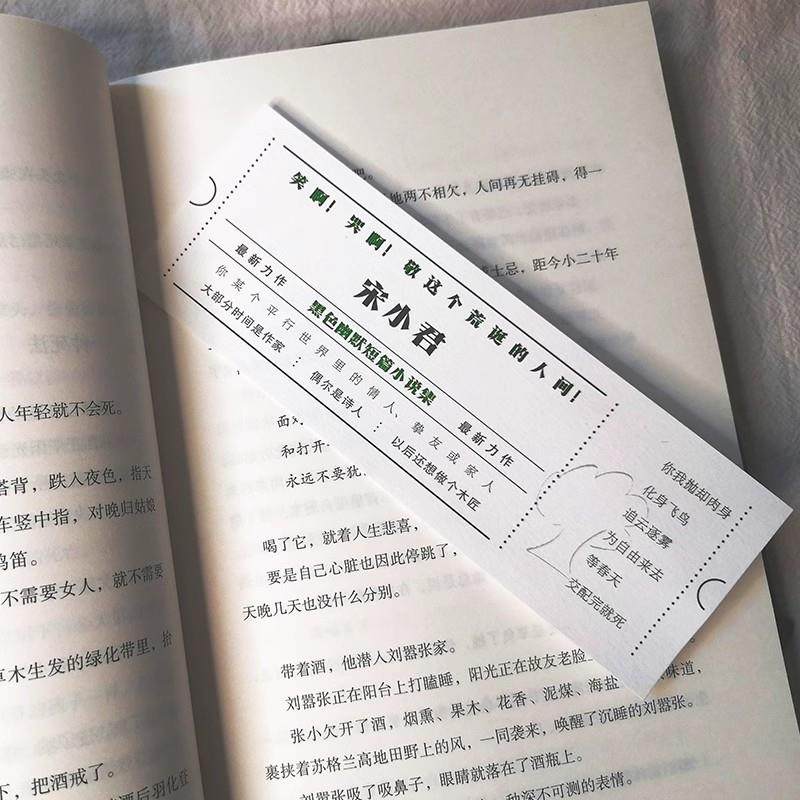 人年轻就不会死。
搭背，跌入夜色，指天
车竖中指，对晚归姑娘
鸣笛。
不需要女人，就不需要
草木生发的绿化带里，抬
下，把酒戒了。
酒后羽化登
地两不相欠，人间再无挂碍，得一
士忌，距今小二十年
笑啊！哭啊！敬这个荒诞的人间！
宋小君
最新力作
黑色幽默短篇小说集
最新力作
你某个平行世界里的情人、挚友或家人
大部分时间是作家
偶尔是诗人
以后还想做个木匠
你我抛却肉身
化身飞鸟
追云逐雾
为自由来去
等春天
交配完就死
和打开
永远不要犹
喝了它，就着人生悲喜，
要是自己心脏也因此停跳了，
天晚几天也没什么分别。
带着酒，他潜入刘嚣张家。
刘嚣张正在阳台上打瞌睡，阳光正在故友老脸
味道，
张小欠开了酒，烟熏、果木、花香、泥煤、海盐
裹挟着苏格兰高地田野上的风，一同袭来，唤醒了沉睡的刘嚣张。
刘嚣张吸了吸鼻子，眼睛就落在了酒瓶上。
种深不可测的表情。